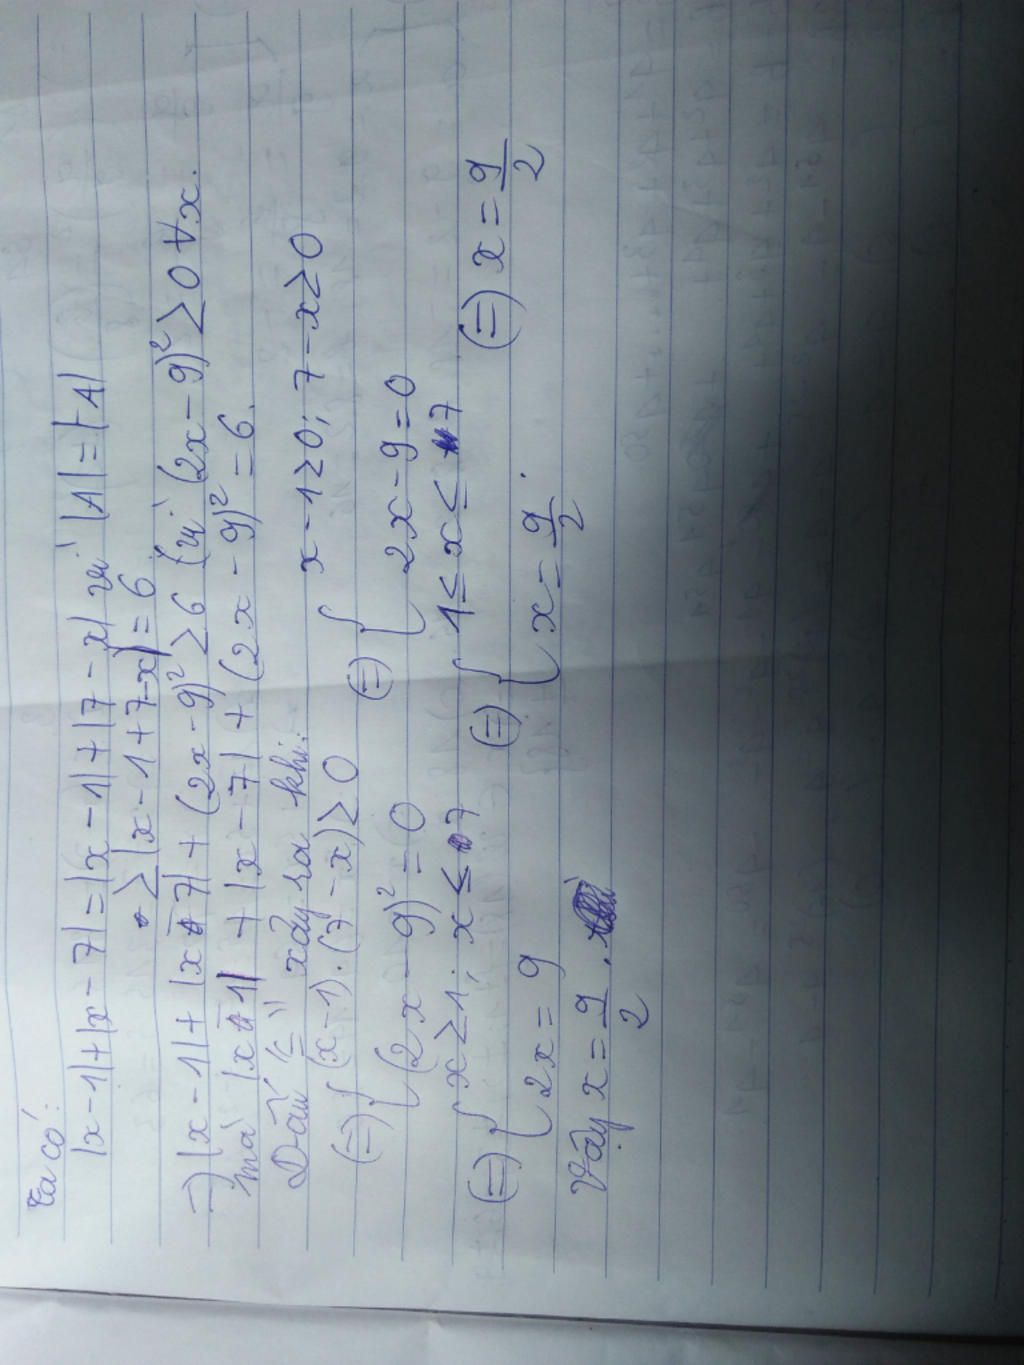 Ta có:
|x-1|+|x-7|=|x-1|+|7-x| vì |A|=|-A|
≥|x-1+7-x|=6
→|x-1|+|x-7|+(2x-9)²≥6 (vì (2x-9)²≥0 ∀x.
mà |x-1|+|x-7|+(2x-9)²=6.
Dấu "=" xảy ra khi:
(=) { (x-1).(7-x)≥0 (=) { x-1≥0; 7-x≥0
(2x-9)²=0 2x-9=0
(=) { x≥1; x≤7 (=) { 1≤x≤7 (=) x=9/2
2x=9 x=9/2.
Vậy x=9/2.